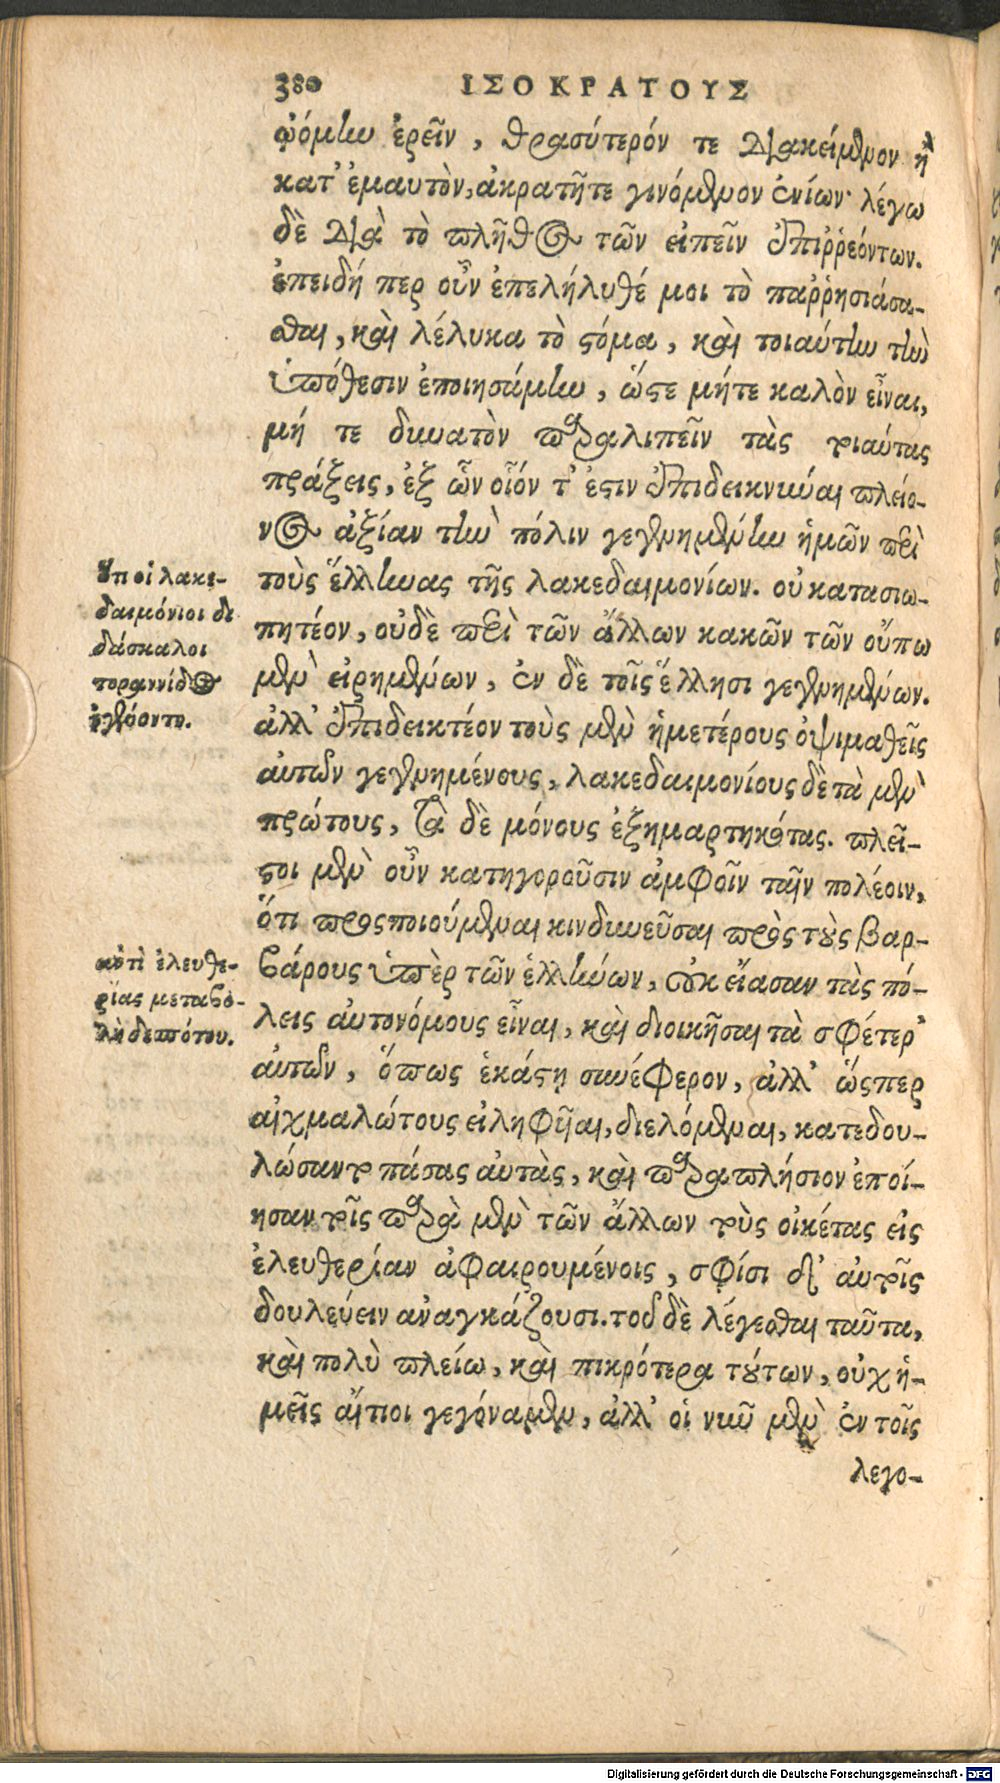 380 ΙΣΟΚΡΑΤΟΥΣ
ᾠόμην ἐρεῖν, θρασύτερόν τε διακείμενον ἢ
κατ' ἐμαυτὸν, ἀκρατῆτε γινόμενον ἐνίων· λέγω
δὲ διὰ τὸ πλῆθος τῶν εἰπεῖν ἐπιῤῥεόντων.
ἐπειδή περ οὖν ἐπελήλυθέ μοι τὸ παῤῥησιάσα-
σθαι, καὶ λέλυκα τὸ στόμα, καὶ τοιαύτην τὴν
ὑπόθεσιν ἐποιησάμην, ὥστε μήτε καλὸν εἶναι,
μή τε δυνατὸν παραλιπεῖν τὰς τοιαύτας
πράξεις, ἐξ ὧν οἷόν τ' ἐστιν ἐπιδεικνύναι πλείο-
νος ἀξίαν τὴν πόλιν γεγενημένην ἡμῶν περὶ
τοὺς ἕλληνας τῆς λακεδαιμονίων. οὐ κατασιω-
πητέον, οὐδὲ περὶ τῶν ἄλλων κακῶν τῶν οὔπω
μὲν εἰρημένων, ἐν δὲ τοῖς ἕλλησι γεγενημένων.
ἀλλ' ἐπιδεικτέον τοὺς μὲν ἡμετέρους ὀψιμαθεῖς
αὐτῶν γεγενημένους, λακεδαιμονίους δὲ τὰ μὲν
πρώτους, τὰ δὲ μόνους ἐξημαρτηκότας. πλεῖ-
στοι μὲν οὖν κατηγοροῦσιν ἀμφοῖν ταῖν πολέοιν,
ὅτι προσποιούμεναι κινδυνεῦσαι πρὸς τοὺς βαρ-
βάρους ὑπὲρ τῶν ἑλλήνων, οὐκ εἴασαν τὰς πό-
λεις αὐτονόμους εἶναι, καὶ διοικῆσαι τὰ σφέτερ'
αὐτῶν, ὅπως ἑκάστη συνέφερον, ἀλλ' ὥσπερ
αἰχμαλώτους εἰληφυῖαι, διελόμεναι, κατεδου-
λώσαντο πάσας αὐτὰς, καὶ παραπλήσιον ἐποί-
ησαν τοῖς παρὰ μὲν τῶν ἄλλων τοὺς οἰκέτας εἰς
ἐλευθερίαν ἀφαιρουμένοις, σφίσι δ' αὐτοῖς
δουλεύειν ἀναγκάζουσι. τοῦ δὲ λέγεσθαι ταῦτα,
καὶ πολὺ πλείω, καὶ πικρότερα τούτων, οὐχ ἡ-
μεῖς αἴτιοι γεγόναμεν, ἀλλ' οἱ νῦν μὲν ἐν τοῖς
λεγο-
οἱ λακε-
δαιμόνιοι δι
δάσκαλοι
τυραννίδος
ἐγένοντο.
ἐλευθε-
ρίας μεταβο-
λὴ δεσπότου.
Digitalisierung gefördert durch die Deutsche Forschungsgemeinschaft - DFG